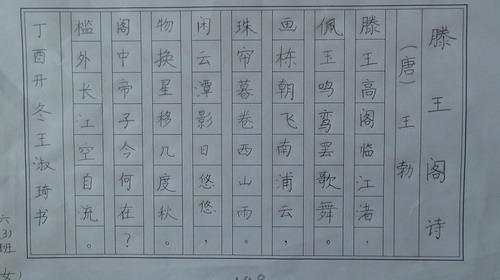 滕王阁诗
(唐)王勃
滕王高阁临江渚，
佩玉鸣鸾罢歌舞。
画栋朝飞南浦云，
珠帘暮卷西山雨。
闲云潭影日悠悠，
物换星移几度秋。
阁中帝子今何在？
槛外长江空自流。
丁酉开冬王淑琦书
六
(3)
班
女)